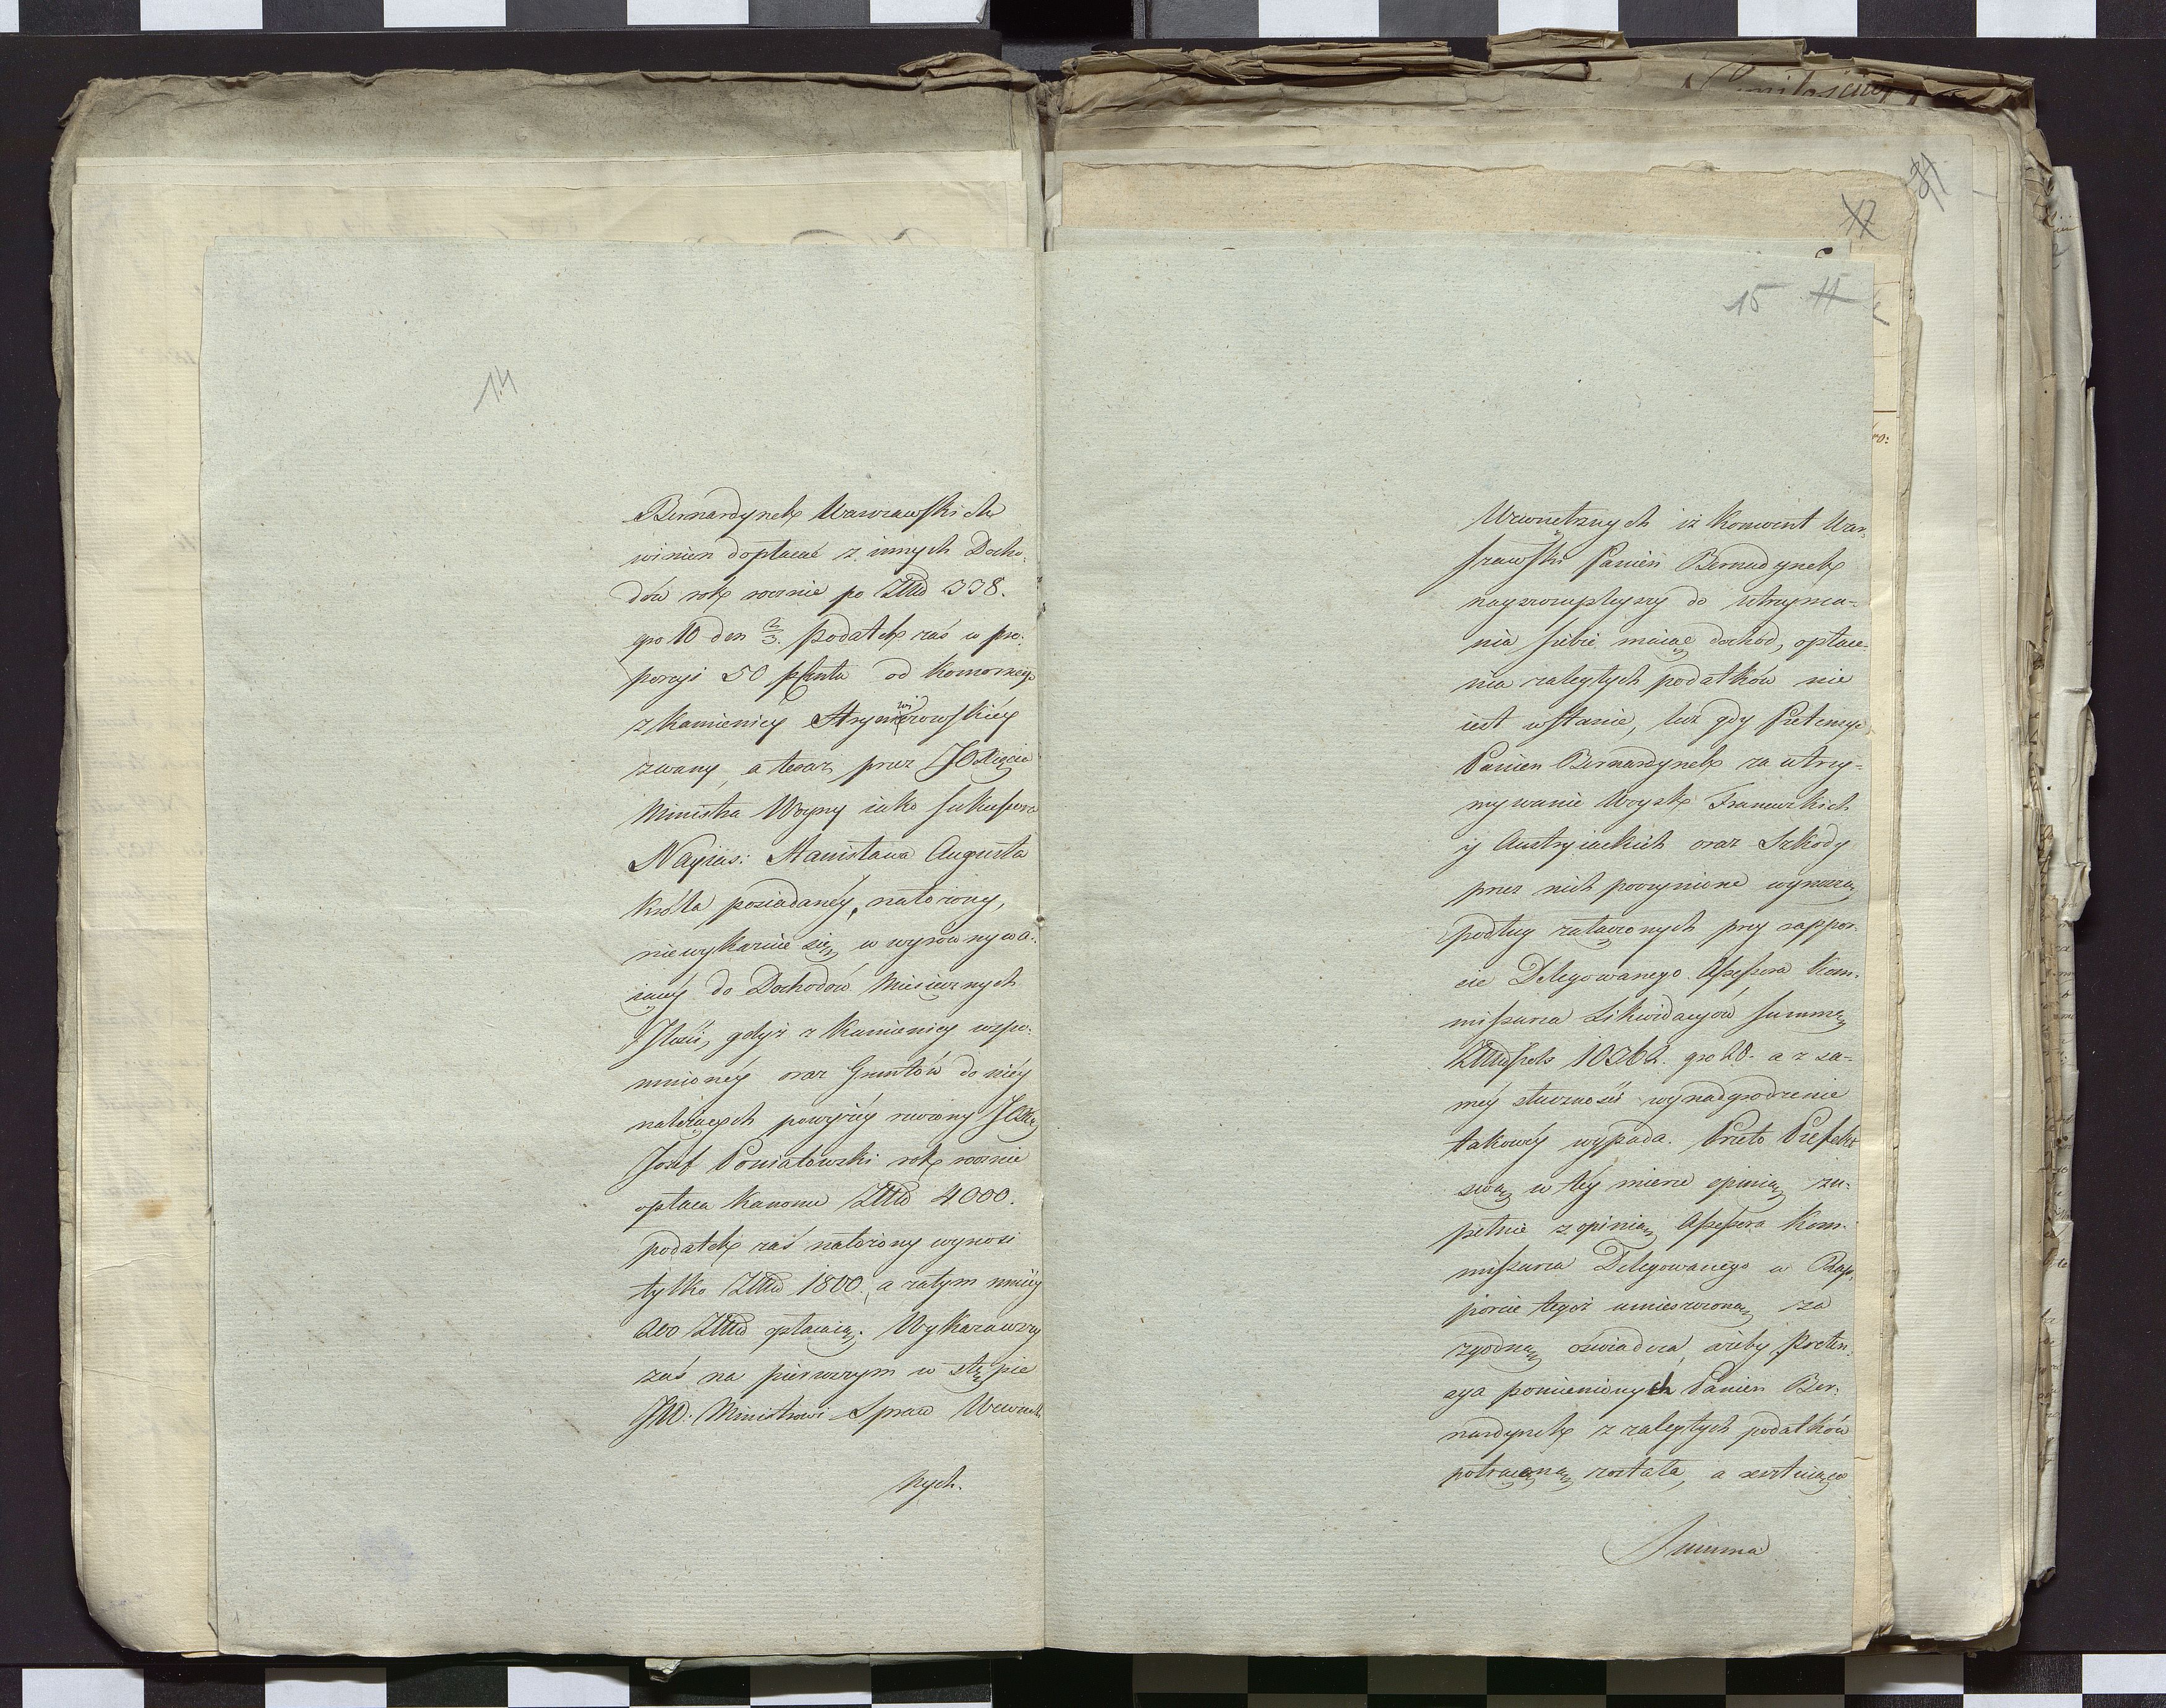 14
Bernardynek Warszawskich
winien dopłacać z innych Docho-
dów rok rocznie po Złłd 338.
gro 10 den 2/3. podatek zaś w pro-
porcyi 50 pCnta od Komornego
z kamienicy
zwany, a teraz przez JO Xięcia
Ministra Woyny iako Sukcesora
Nayias: Stanisława Augusta
Króla posiadanéy, nałożony,
niewykazuie się w wyrówny wa-
iącéy do Dochodów Miesięcznych
Ilości, gdyż z Kamienicy wspo-
mnionéy oraz Gruntów do niéy
należących powyżéy rzeczony JOXże
Józef Poniatowski rok rocznie
opłaca Kanonu Złłd 4000.
podatek zaś nałożony wynosi
tylko Złłd 1800. a zatym mniéy
200 Złłd opłacaią. Wykazawszy
zaś na pierwszym wstępie
JW. Ministrowi Spraw Wewnętrz
nych.
17
15 11
Wewnętrznych iż Konwent War-
szawski Panien Bernadynek
nayszczupleyszy do utrzyma-
nia siebie maiąc dochod, opłace-
nia zaległych podatków nie
iest wstanie, lecz gdy Pretensye
Panien Bernardynek za utrzy-
mywanie Woysk Francuzkich
y Austryiackich oraz Szkody
przez nich poczynione wynoszą
podług załączonych przy rappor-
cie Delegowanego Assesora Kom-
missarza Likwidacyów Summę
Złłdpols 10362. gro 28. a z sa-
méy słuszności wynadgrodzenie
takowéy wypada. Przeto Prefekt
swą w téy mierze opinią zu-
pełnie z opinią Assesora Kom-
missarza Delegowanego w Rap-
porcie tegoż umieszczoną za
zgodną oświadcza, ażeby Preten-
sya pomienionych Panien Ber-
nardynek z zaległych podatków
potrąconą została, a
Summa